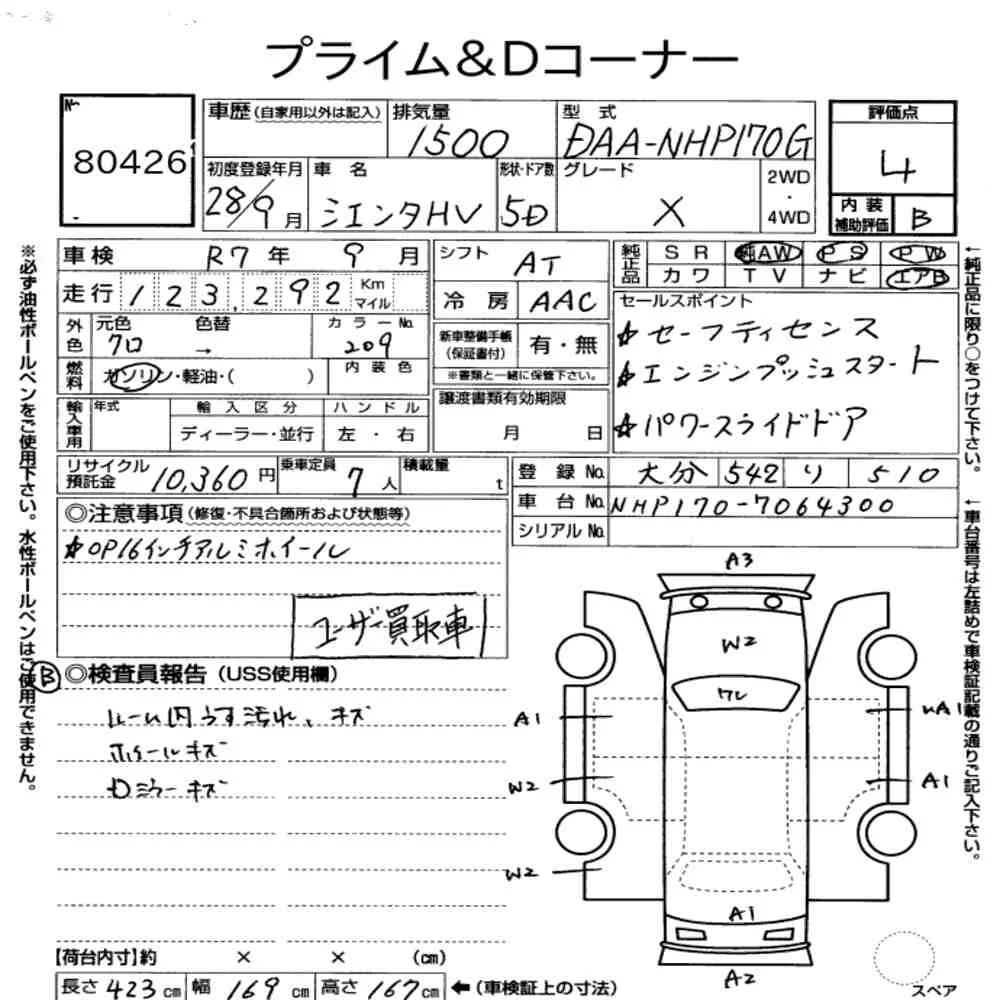 プライム&Dコーナー
No.
80426
車歴(自家用以外は記入)
排気量
1500
型 式
DAA-NHP170G
評価点
4
初度登録年月
28/9月
車 名
シエンタHV
形状・ドア数
5D
グレード
X
2WD
・
4WD
内 装
補助評価
B
車検 R7年 9月
シフト
AT
純正品
SR 純AW PS PW
カワ TV ナビ エアB
走行 123,292 Km
マイル
冷 房
AAC
セールスポイント
☆セーフティセンス
☆エンジンプッシュスタート
☆パワースライドドア
外色
元色 色替
クロ →
カラーNo.
209
新車整備手帳
(保証書付)
有・無
※書類と一緒に保管下さい。
燃料
ガソリン・軽油・( )
内 装 色
輸入車用
年式
輸 入 区 分
ディーラー・並行
ハ ン ド ル
左 ・ 右
譲渡書類有効期限
月 日
リサイクル
預託金
10,360円
乗車定員
7人
積載量
t
登 録 No.
大分 542 り 510
車 台 No.
NHP170-7064300
シリアル No.
◎注意事項(修復・不具合箇所および状態等)
☆OP16インチアルミホイール
ユーザー買取車
B
◎検査員報告(USS使用欄)
ルーム内うす汚れ、キズ
ホイールキズ
Dミラーキズ
A3
W2
ワレ
A1
A1
W2
A1
W2
A1
A2
スペア
【荷台内寸】約 × × (cm)
長さ 423 cm 幅 169 cm 高さ 167 cm ←(車検証上の寸法)
※必ず油性ボールペンをご使用下さい。水性ボールペンはご使用できません。
←純正品に限り○をつけて下さい。
←車台番号は左詰めで車検証記載の通りご記入下さい。